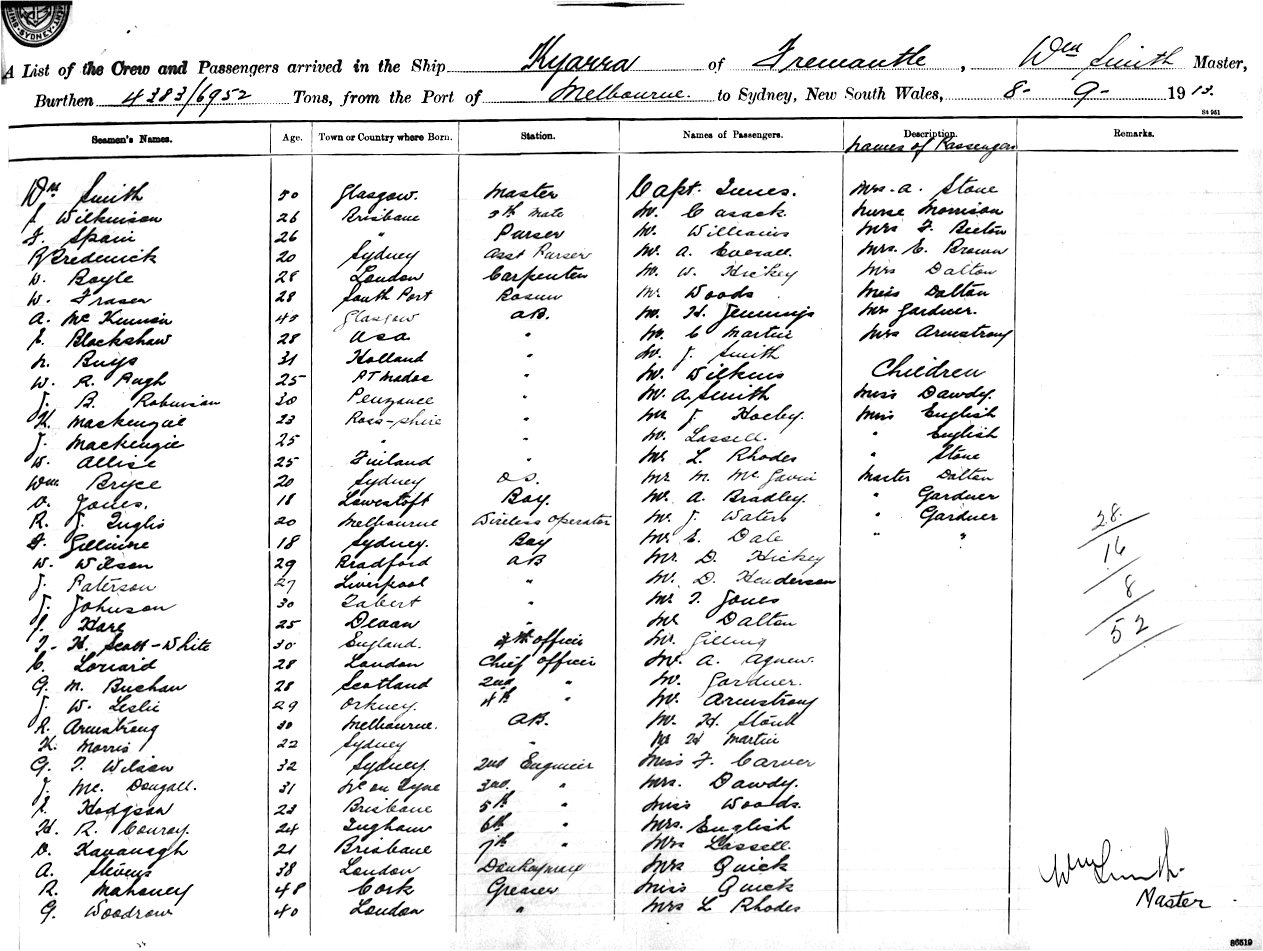 SYDNEY
A List of the Crew and Passengers arrived in the Ship Kyarra of Fremantle, Wm Smith Master,
Burthen 4383/6952 Tons, from the Port of Melbourne. to Sydney, New South Wales, 8- 9- 1913.
St 951
Seamen's Names. Age. Town or Country where Born. Station. Names of Passengers. Description. Remarks.
Names of Passengers
Wm Smith 50 Glasgow. Master Capt. Innes. Mrs. A. Stone
J. Wilkinson 26 Brisbane 5th Mate Mr. Casack. Nurse Morrison
F. Spain 26 " Purser Mr. Williams Mrs F. Beeton
R. Brederick 20 Sydney Asst Purser Mr. A. Everall. Mrs. E. Brown
W. Boyle 28 London Carpenter Mr. W. Hickey Mrs Dalton
W. Fraser 28 South Port Bosun Mr Woods Miss Dalton
A. McKinnon 40 Glasgow AB. Mr. H. Jennings Mrs Gardner.
E. Blackshaw 28 USA " Mr. C. Martin Mrs Armstrong
N. Buys 31 Holland " Mr. J. Smith
W. R. Pugh 25 PT Madoc " Mr. Wilkins Children
J. B. Robinson 30 Penzance " Mr. A. Smith Miss Dawdy.
K. Mackenzie 23 Ross-shire " Mr J. Hocby. Miss English
J. Mackenzie 25 " " Mr. Lassell. " English
W. Allise 25 Finland " Mr. L. Rhodes " Stone
Wm. Bryce 20 Sydney O.S. Mr M. McGavin Master Dalton
O. Jones. 18 Lowestoft Boy. Mr. A. Bradley. " Gardner
R. J. Inglis 20 Melbourne Wireless operator Mr. J. Waters " Gardner 28.
F. Gillmore 18 Sydney. Boy Mr. E. Dale " "
W. Wilson 29 Bradford AB Mr. D. Hickey 16
J. Paterson 27 Liverpool " Mr. D. Henderson
J. Johnson 30 " Mr T. Jones 8
J. Hare 25 Devon " Mr Dalton
T. H. Scott-White 30 England. officer Mr. Gilling 52
C. Lorrard 28 London Chief officer Mr. A. Agnew.
G. M. Buchan 28 Scotland 2nd " Mr. Gardner.
J. W. Leslie 29 Orkney. 4th " Mr. Armstrong
R. Armstrong 30 Melbourne. AB. Mr. H. Stone
K. Morris 22 Sydney " Mr H Martin
G. T. Wilson 32 Sydney. 2nd Engineer Miss F. Carver
J. Mc. Dougall. 31 Nc on Tyne 3rd. " Mrs. Dawdy.
E. Hodgson 23 Brisbane 5th " Miss Woods.
H. R. Conroy. 24 Ingham 6th " Mrs. English
O. Kavanagh 21 Brisbane 7th " Mrs Lassell
A. Stevens 38 London Donkeyman Mrs Quick
R. Mahoney 48 Cork Greaser Miss Quick
G. Woodrow 40 London " Mrs L Rhodes
Wm Smith.
Master
86519